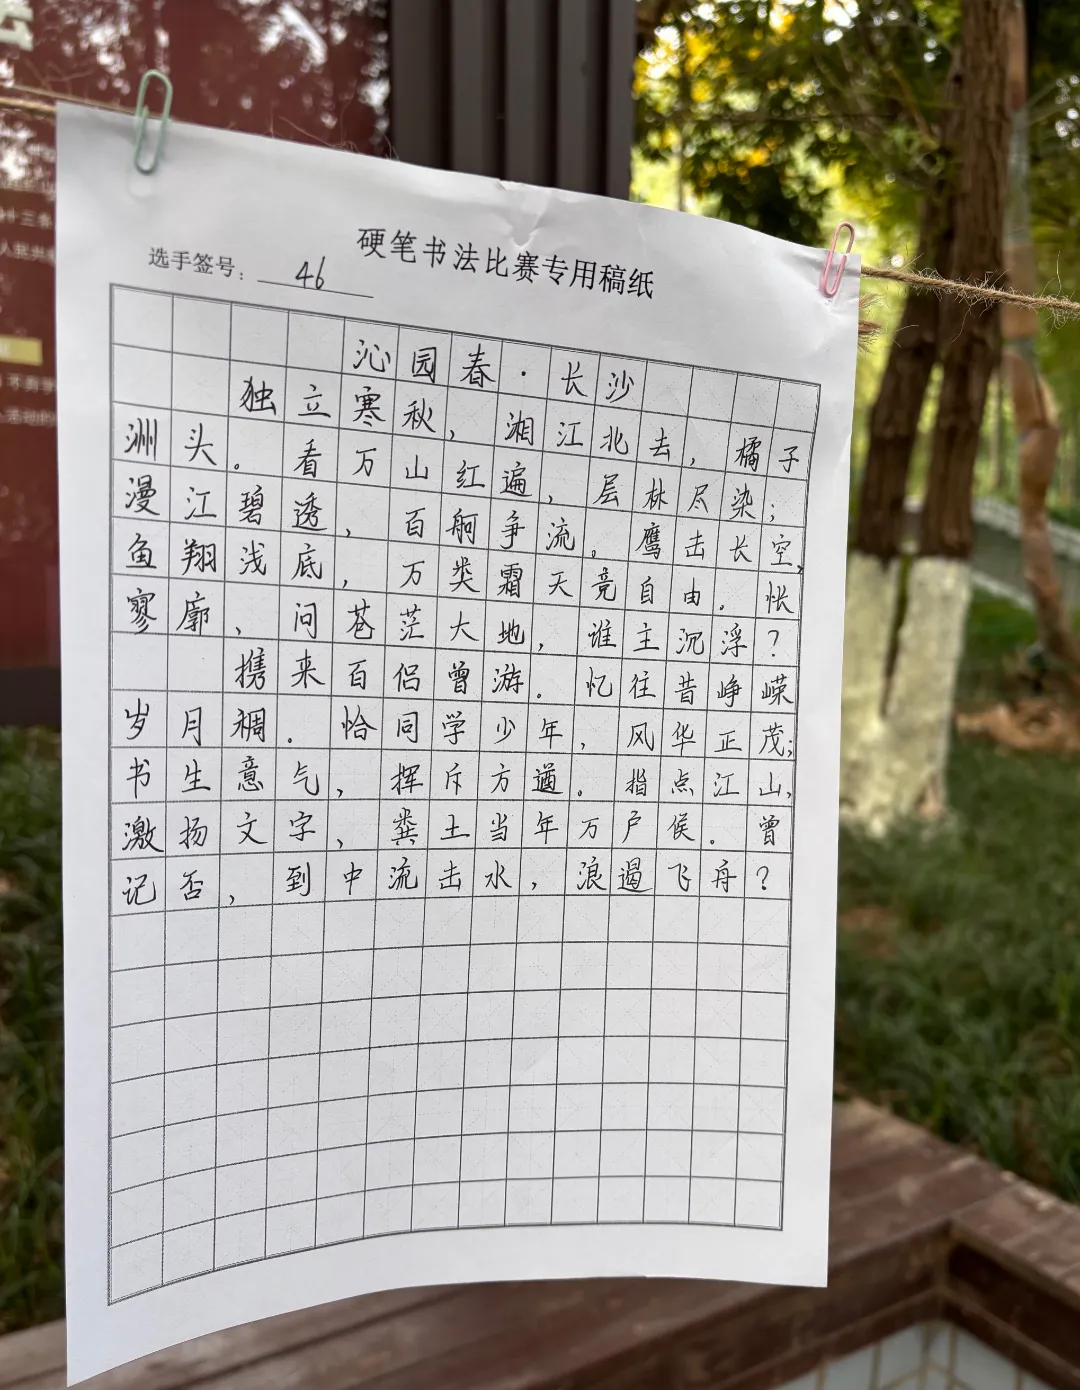 硬笔书法比赛专用稿纸
选手签号：46
沁园春·长沙
独立寒秋，湘江北去，橘子
洲头。看万山红遍，层林尽染；
漫江碧透，百舸争流。鹰击长空，
鱼翔浅底，万类霜天竞自由。怅
寥廓，问苍茫大地，谁主沉浮？
携来百侣曾游。忆往昔峥嵘
岁月稠。恰同学少年，风华正茂；
书生意气，挥斥方遒。指点江山，
激扬文字，粪土当年万户侯。曾
记否，到中流击水，浪遏飞舟？